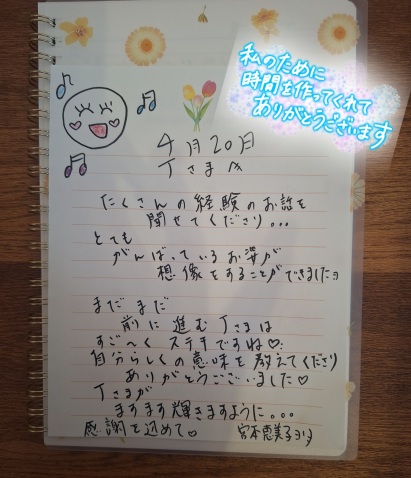 私のために
時間を作ってくれて
ありがとうございます
4月20日
Tさまへ
たくさんの経験のお話を
聞せてくださり。。。
とても
がんばっているお姿が
想像をすることができましたヨ
まだまだ
前に進むTさまは
すご〜くステキですね♡
自分らしくの意味を教えてくださり
ありがとうございました♡
Tさまが
ますます輝きますように。。。
感謝を込めて♡
宮本恵美子より